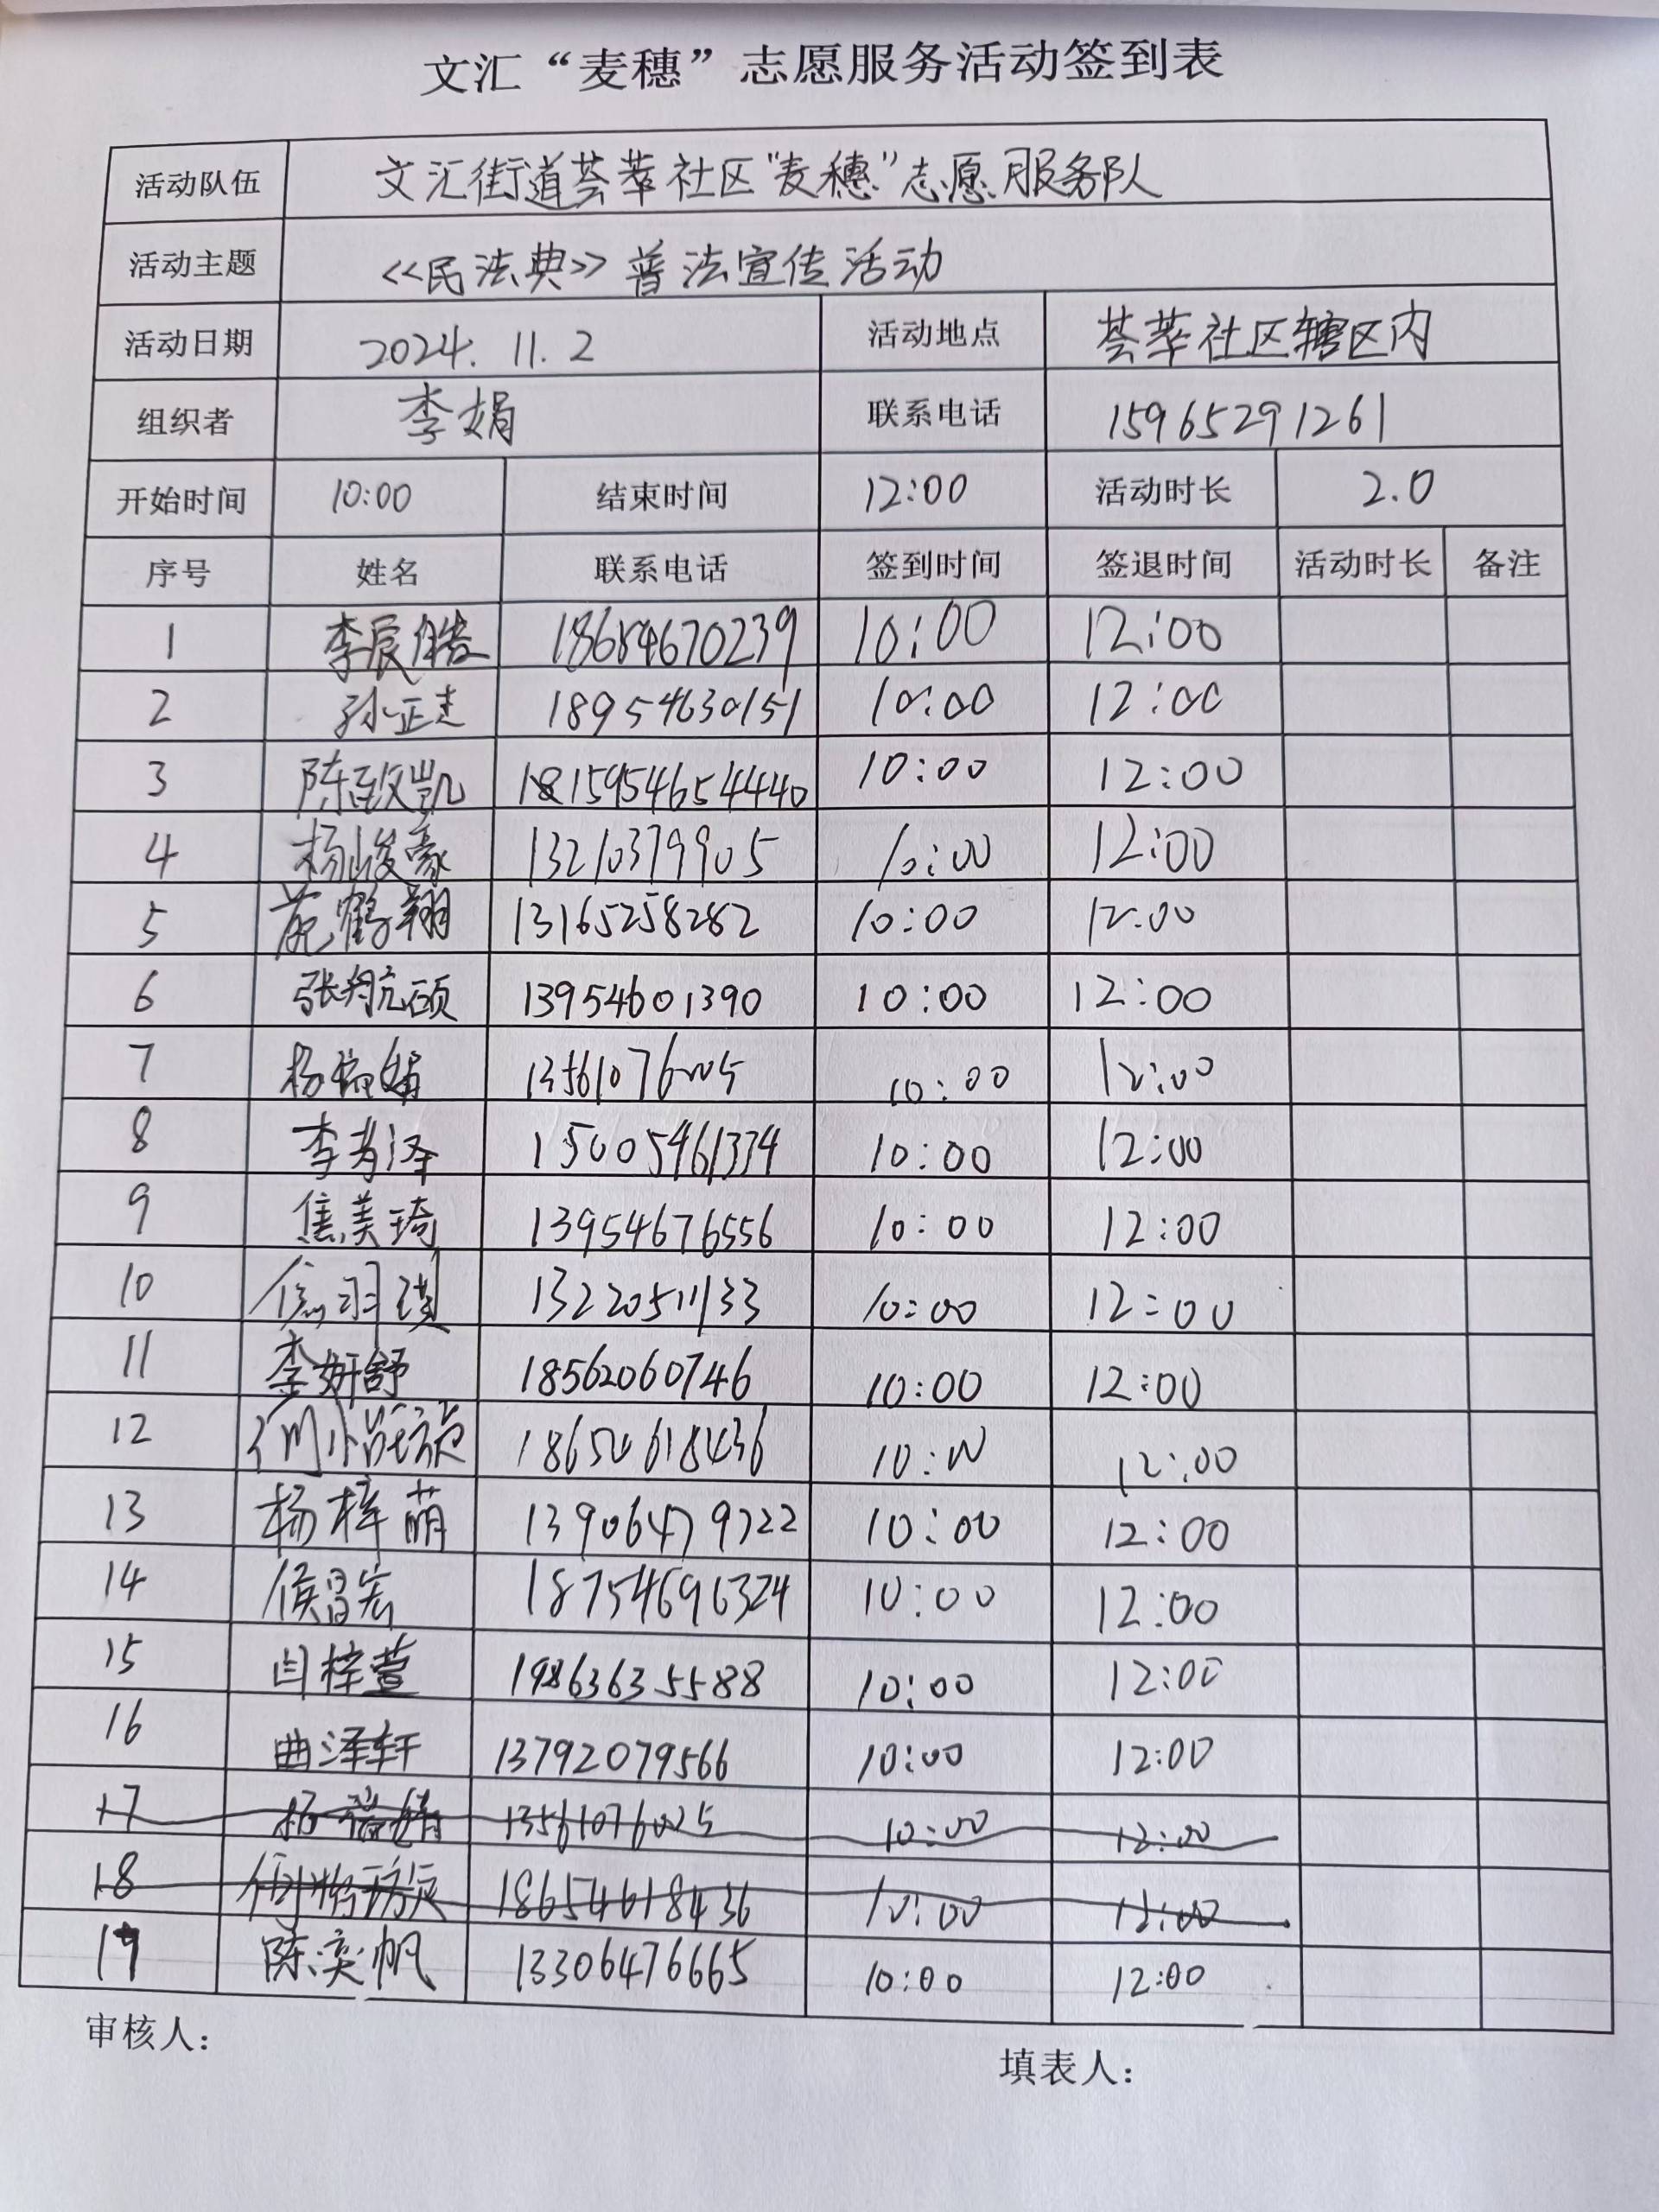 文汇“麦穗”志愿服务活动签到表
活动队伍 文汇街道荟萃社区“麦穗”志愿服务队
活动主题 《民法典》普法宣传活动
活动日期 2024.11.2 活动地点 荟萃社区辖区内
组织者 李娟 联系电话 15965291261
开始时间 10:00 结束时间 12:00 活动时长 2.0
序号 姓名 联系电话 签到时间 签退时间 活动时长 备注
1 李辰皓 18654670239 10:00 12:00
2 孙正 18954630151 10:00 12:00
3 陈致凯 10:00 12:00
4 杨峻豪 13210379905 10:00 12:00
5 苑鹤翔 13165258282 10:00 12:00
6 张航硕 13954601390 10:00 12:00
7 杨瑞娟 13561076005 10:00 12:00
8 李 泽 15005461334 10:00 12:00
9 焦美琦 13954676556 10:00 12:00
10 13220511133 10:00 12:00
11 李妍舒 18562060746 10:00 12:00
12 18654618436 10:00 12:00
13 杨梓萌 13906479722 10:00 12:00
14 侯昌宏 18754696324 10:00 12:00
15 闫梓萱 19863635588 10:00 12:00
16 曲泽轩 13792079566 10:00 12:00
17 10:00 12:00
18 18654618436 10:00 12:00
19 陈奕帆 13306476665 10:00 12:00
审核人：
填表人：